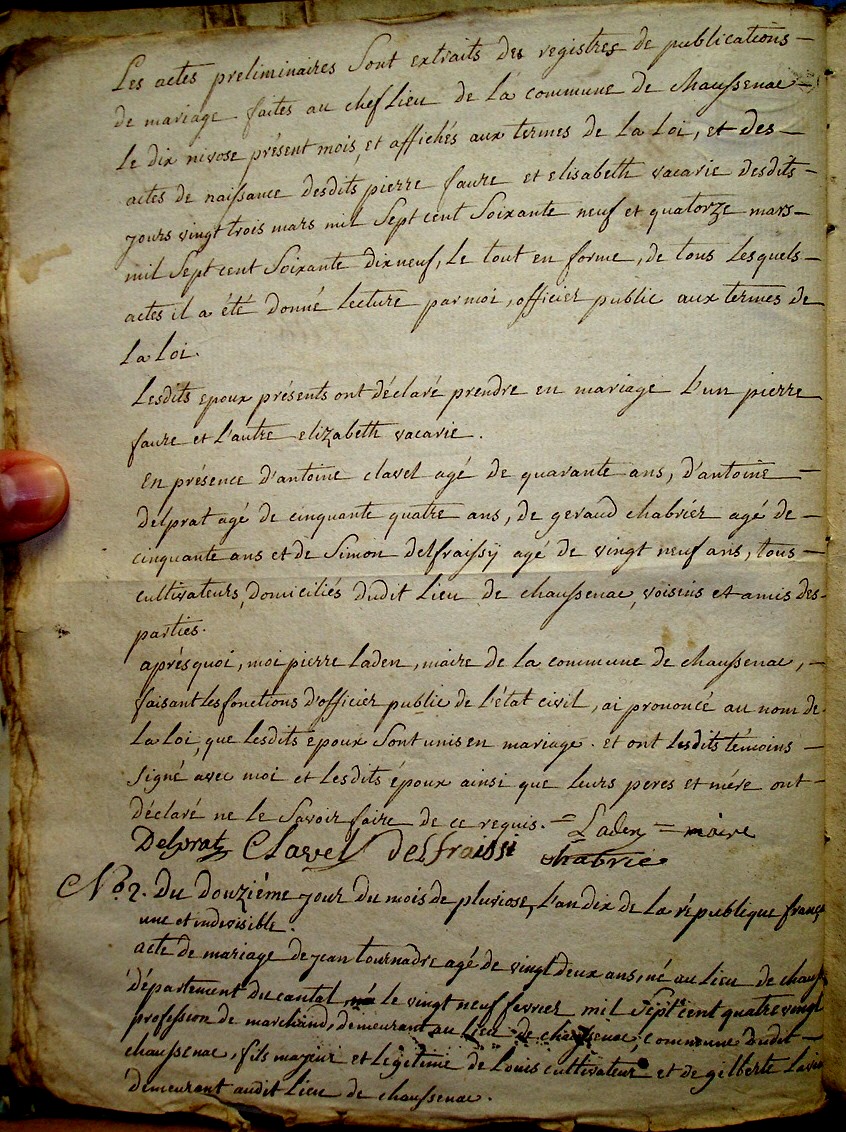 Les actes preliminaires Sont extraits des registres de publications
de mariage. faites au chef Lieu de La commune de chaussenac
Le dix nivose présent mois, et affichés aux termes de La Loi, et des
actes de naissance desdits pierre faure et elisabeth vacarie desdits
jours vingt trois mars mil Sept cent Soixante neuf et quatorze mars
mil Sept cent Soixante dix neuf, Le tout en forme, de tous Lesquels
actes il a été donné Lecture par moi, officier public aux termes de
La Loi.
Lesdits epoux présents ont déclaré prendre en mariage L'un pierre
faure et L'autre elizabeth vacarie.
En présence d'antoine clavel agé de quarante ans, d'antoine
delprat agé de cinquante quatre ans, de geraud chabrier agé de
cinquante ans et de Simon delfraissÿ agé de vingt neuf ans, tous
cultivateurs, domiciliés dudit Lieu de chaussenac, voisins et amis des
parties.
après quoi, moi pierre Laden, maire de La commune de chaussenac,
faisant Les fonctions d'officier public de L'état civil, ai prononcé au nom de
La Loi, que Lesdits époux Sont unis en mariage. et ont Lesdits témoins
Signé avec moi et Lesdits époux ainsi que Leurs peres et mére ont
déclaré ne Le Savoir faire de ce requis. = Laden = maire
Delprat Clavel delfraissi chabrie
N.o 2. Du douziéme jour du mois de pluviose, L'an dix de La république
une et indivisible.
acte de mariage de jean tournadre agé de vingt deux ans, né au Lieu de
département du cantal, né le vingt neuf fevrier mil Sept cent quatre vingt
profession de marchand, demeurant au Lieu de chaussenac commune dudit
chaussenac, fils majeur et Légitime de Louis cultivateur et de gilberte
demeurant audit Lieu de chaussenac.